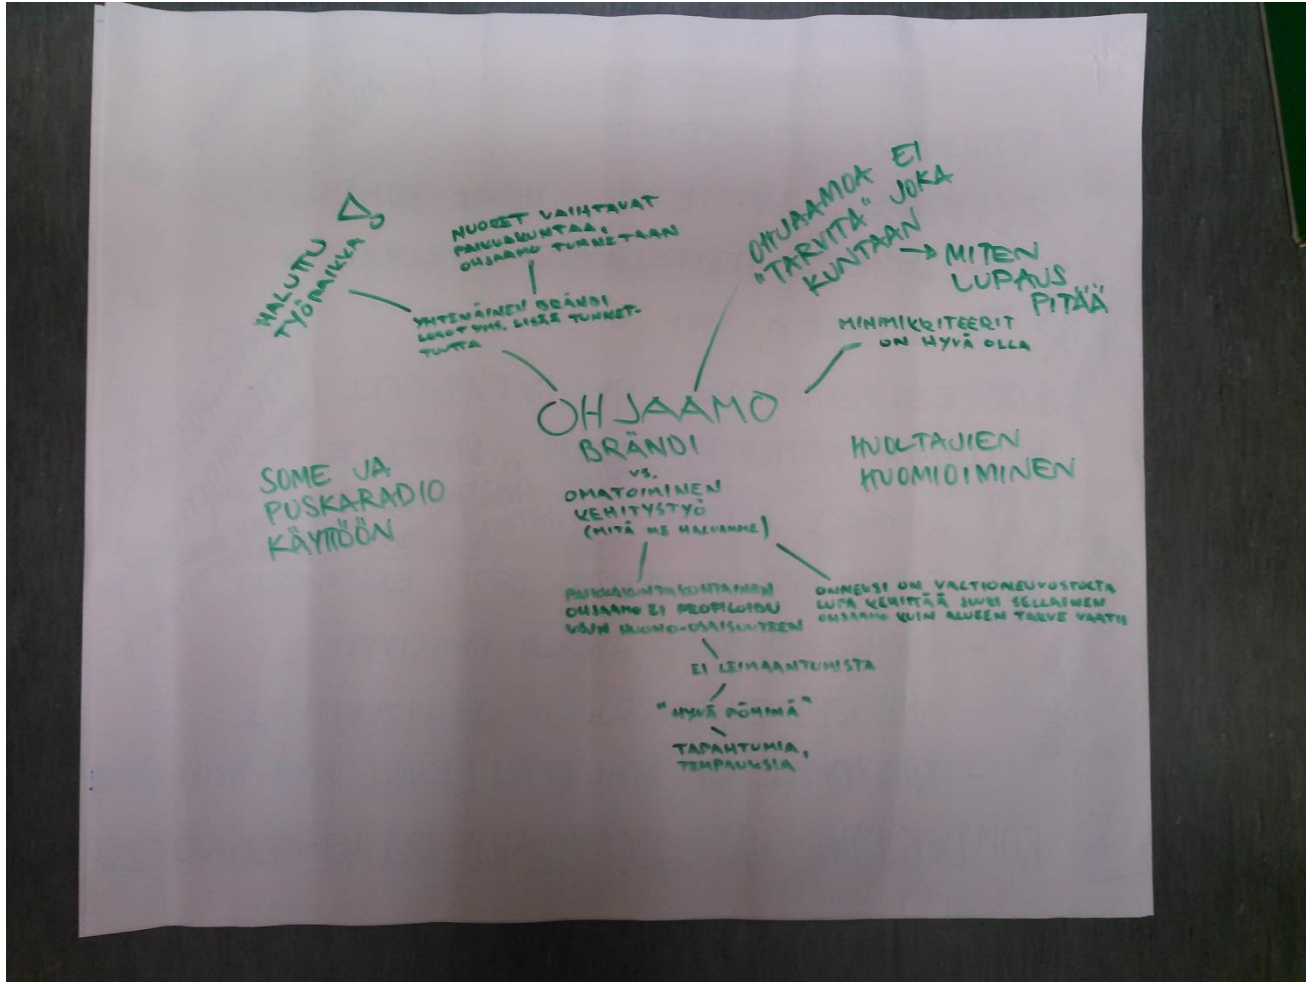 HALUTTU
TYÖPAIKKA!
NUORET VAIHTAVAT
PAIKKAKUNTAA,
OHJAAMO TUNNETAAN
YHTENÄINEN BRÄNDI
LOGOT YMS. LISÄÄ TUNNET-
TUUTTA
OHJAAMOA EI
"TARVITA" JOKA
KUNTAAN
→ MITEN
LUPAUS
PITÄÄ
MINIMIKRITEERIT
ON HYVÄ OLLA
OHJAAMO
BRÄNDI
vs.
OMATOIMINEN
KEHITYSTYÖ
(MITÄ ME HALUAMME)
HUOLTAJIEN
HUOMIOIMINEN
SOME JA
PUSKARADIO
KÄYTTÖÖN
PAIKKAKUNTAKOHTAINEN
OHJAAMO EI PROFILOIDU
VAIN HUONO-OSAISUUTEEN
ONNEKSI ON VALTIONEUVOSTOLTA
LUPA KEHITTÄÄ JUURI SELLAINEN
OHJAAMO KUIN ALUEEN TARVE VAATII
EI LEIMAANTUMISTA
"HYVÄ PÖHINÄ"
TAPAHTUMIA,
TEMPAUKSIA